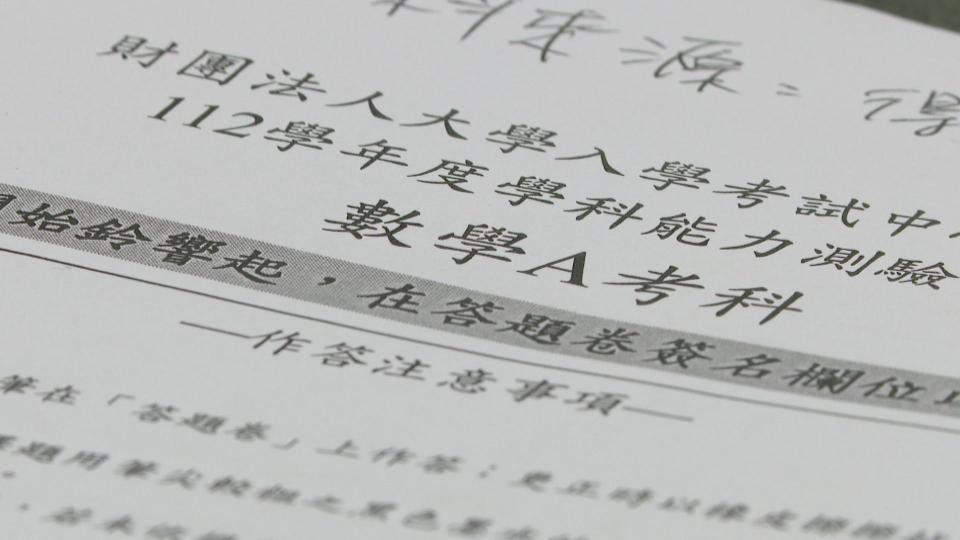 料來源：得
財團法人大學入學考試中
112學年度學科能力測驗
數學A考科
始鈴響起，在答題卷簽名欄位
—作答注意事項—
筆在「答題卷」上作答；更正時以橡皮擦擦
題用筆尖較粗之黑色墨水